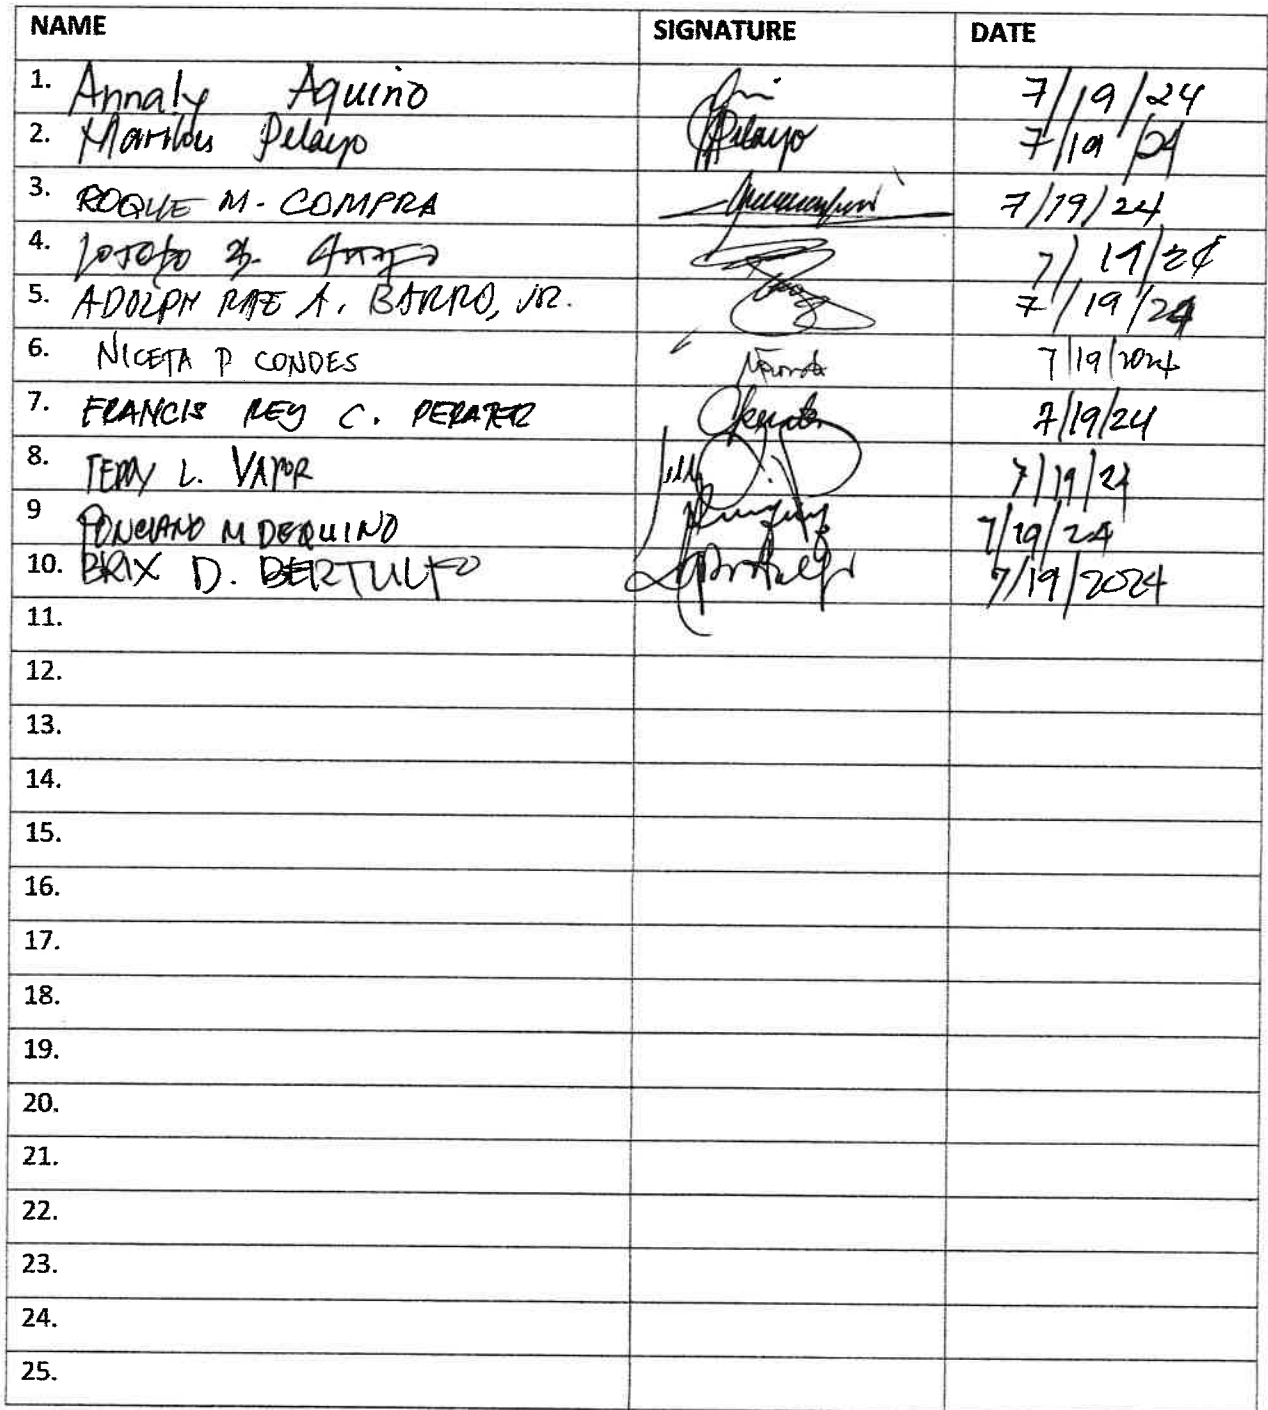 NAME SIGNATURE DATE
1. Annaly Aquino 7/19/24
2. Marilou Pelayo Pelayo 7/19/24
3. ROQUE M. COMPRA 7/19/24
4. 7/19/24
5. ADOLPH RAE A. BARRO, JR. 7/19/24
6. NICETA P CONDES 7/19/2024
7. FRANCIS REY C. PERATER 7/19/24
8. TEDDY L. VAPOR 7/19/24
9 PONCIANO M DEQUINO 7/19/24
10. BRIX D. BERTULFO 7/19/2024
11.
12.
13.
14.
15.
16.
17.
18.
19.
20.
21.
22.
23.
24.
25.